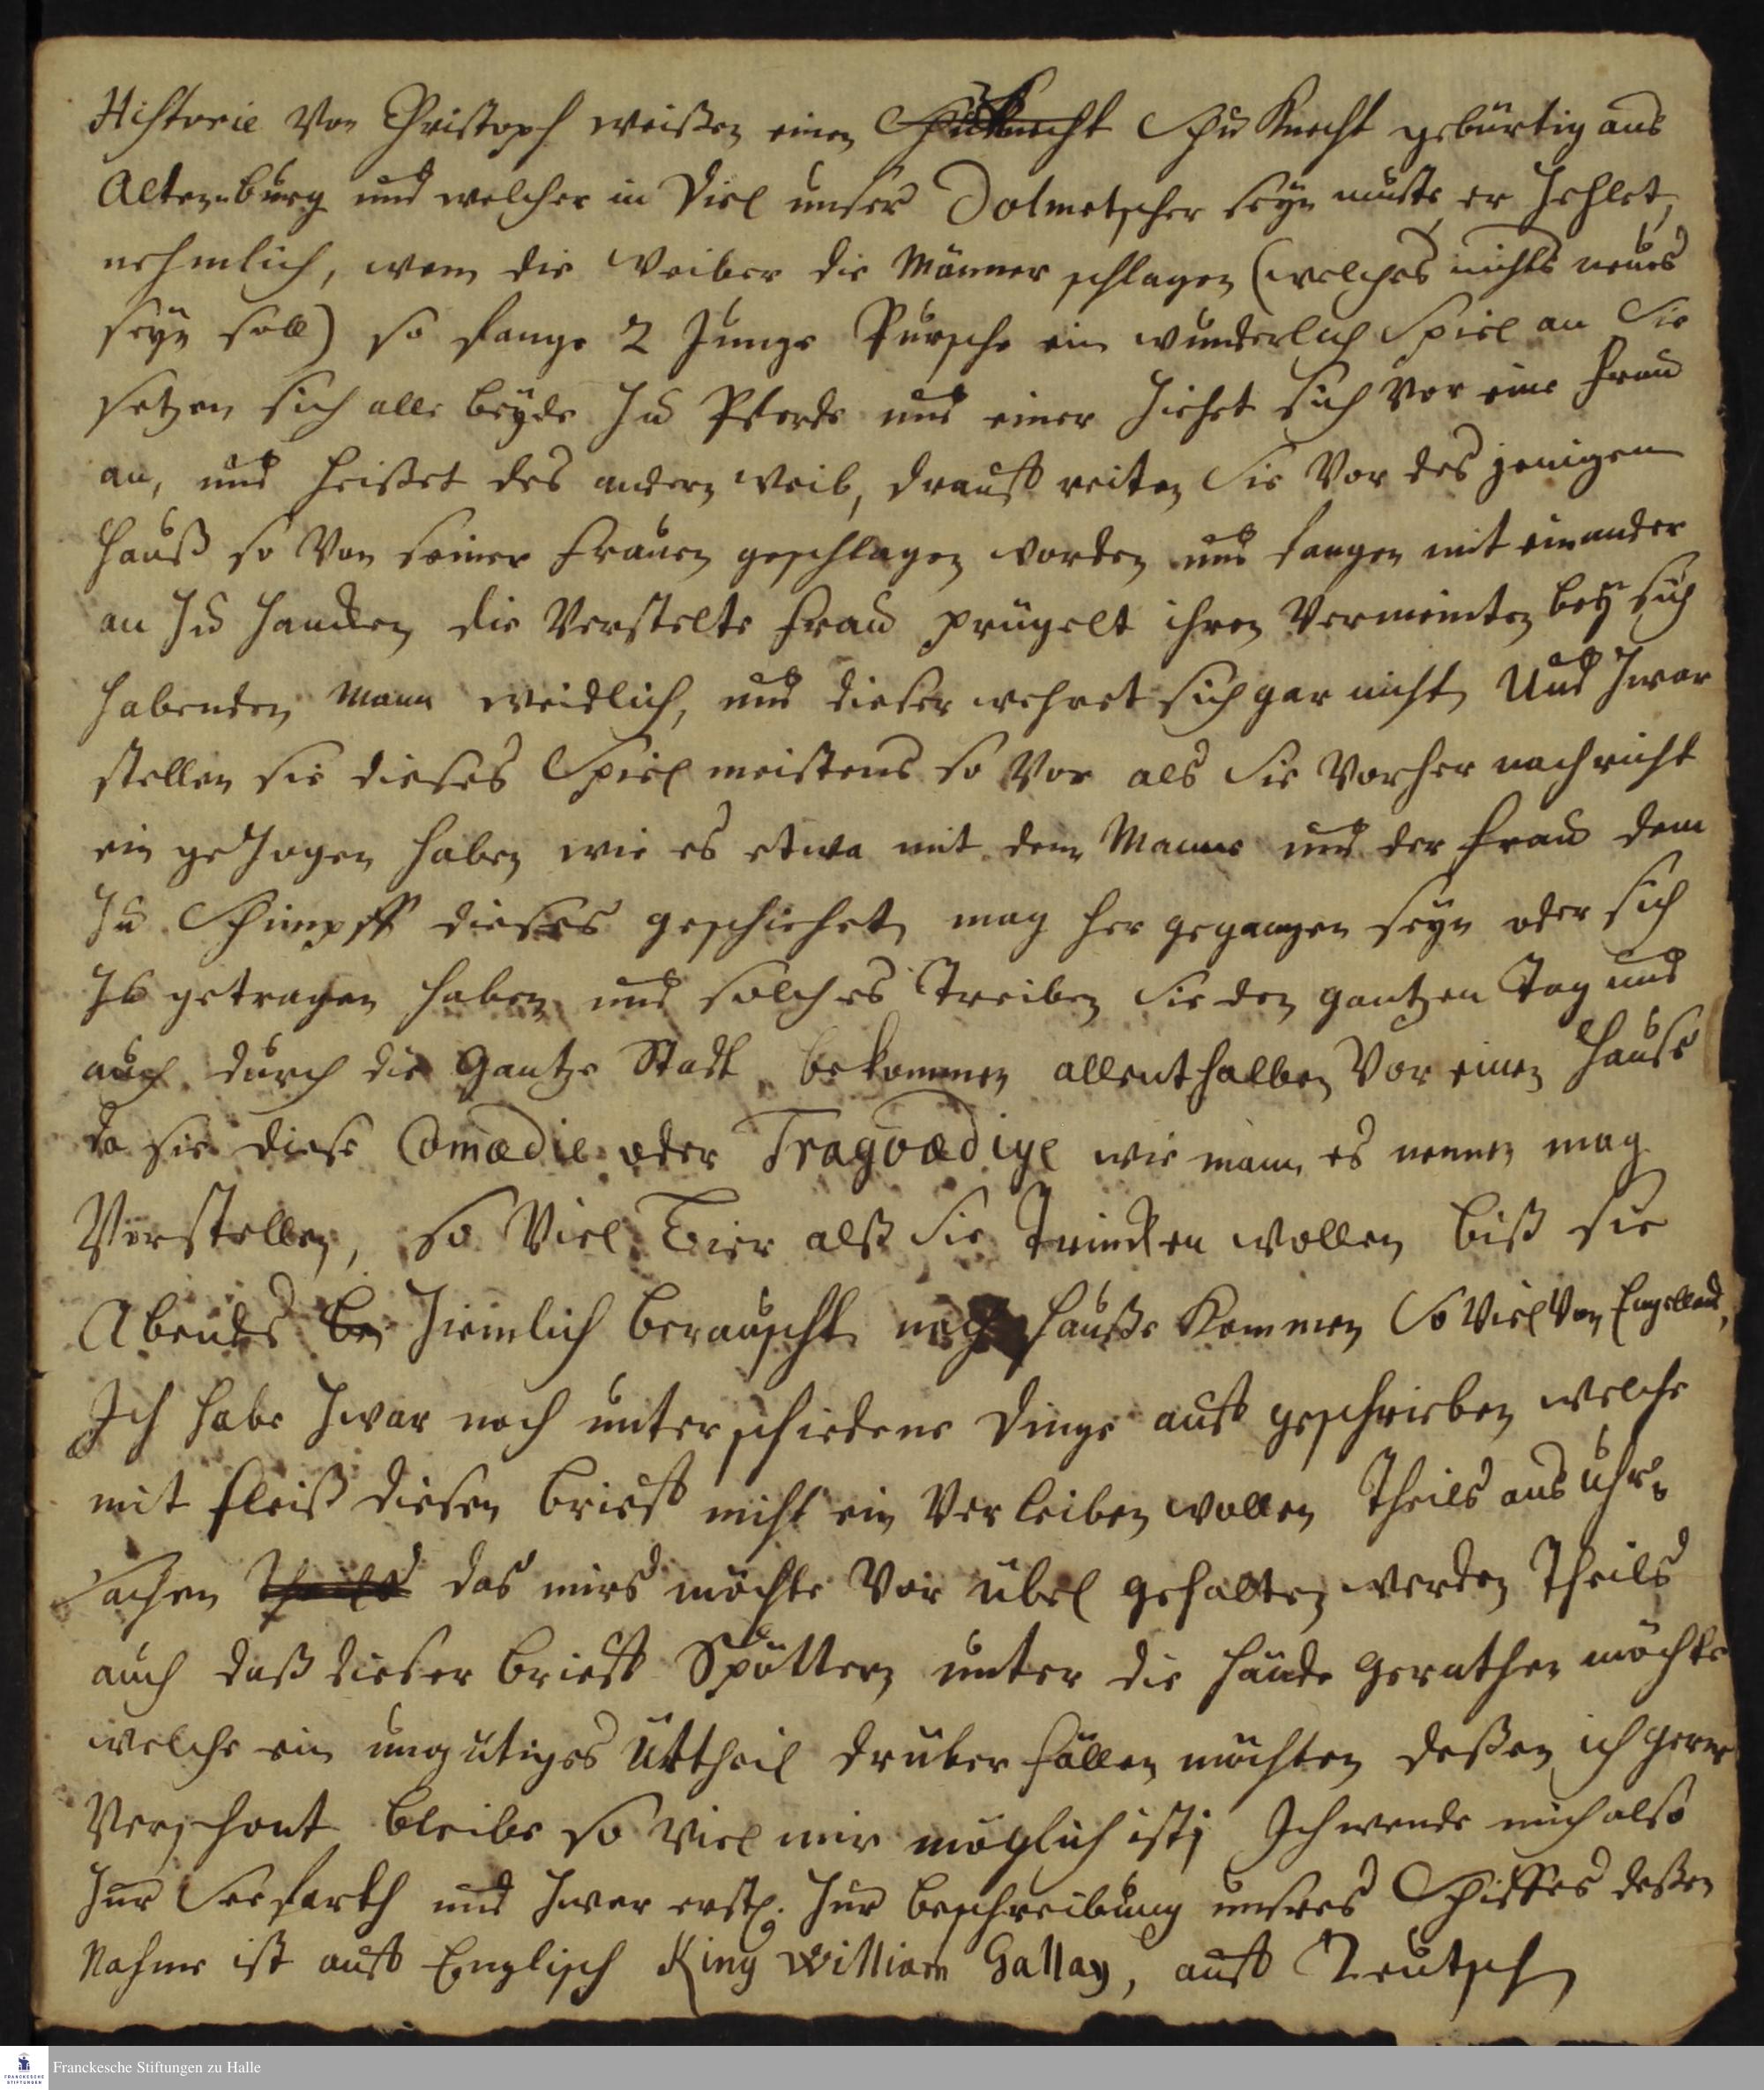 Historie Von Christoph weißen einen Schuknecht Schu Knecht gebürtig aus
Altenburg und welcher in Diel unser Dolmetscher seyn muste, er Zehlet,
nehmlich, wenn die Weiber die Männer schlagen (welches nichts neues
seyn soll) so fange 2 Junge Pursche ein wunderlich Spiel an Sie
setzen sich alle beyde Zu Pferde und einer Ziehet sich Vor eine Frau
an, und heißet des andern Weib, drauff reiten Sie Vor des jenigen
Hauß so Von seiner Frauen geschlagen worden und fangen mit einander
an Zu Zancken die Verstelte Frau prügelt ihren Vermeinten bey sich
habenden Mann weidlich, und dieser wehret sich gar nicht, Und Zwar
stellen sie dieses Spiel meistens so Vor als Sie Vorher nachricht
ein geZogen haben wie es etwa mit dem Manne und der Frau dem
Zu Schimpff dieses geschiehet, mag her gegangen seyn oder sich
Zu getragen haben und solches Treiben Sie den gantzen Tag und
auch durch die Gantze Stadt bekommen allenthalben Vor einen Hause
da sie diese Comædie oder Tragoædiye wie mann es nennen mag
Vorstellen, so Viel Bier alß Sie Trincken wollen biß sie
Abends be Ziemlich berauscht nach Hauße Kommen So Viel Von Engelland,
Ich habe Zwar noch unterschiedene Dinge auff geschrieben welche
mit fleiß diesen brieff nicht ein Verleiben wollen Theils aus Uhr=
sachen Theils das mirs möchte Vor übel gehalten werden Theils
auch daß dieser brieff Spöttern unter die Hände gerathen möchte
welche ein ungütiges Urtheil drüber fällen möchten deßen ich gerne
Verschont bleibe so Viel mir möglich ist; Ich wende mich also
Zur Seefarth und Zwar erstl. Zur beschreibung unsers Schiffes deßen
Nahme ist auff Englisch King William Gallay, auff Teutsch
Franckesche Stiftungen zu Halle